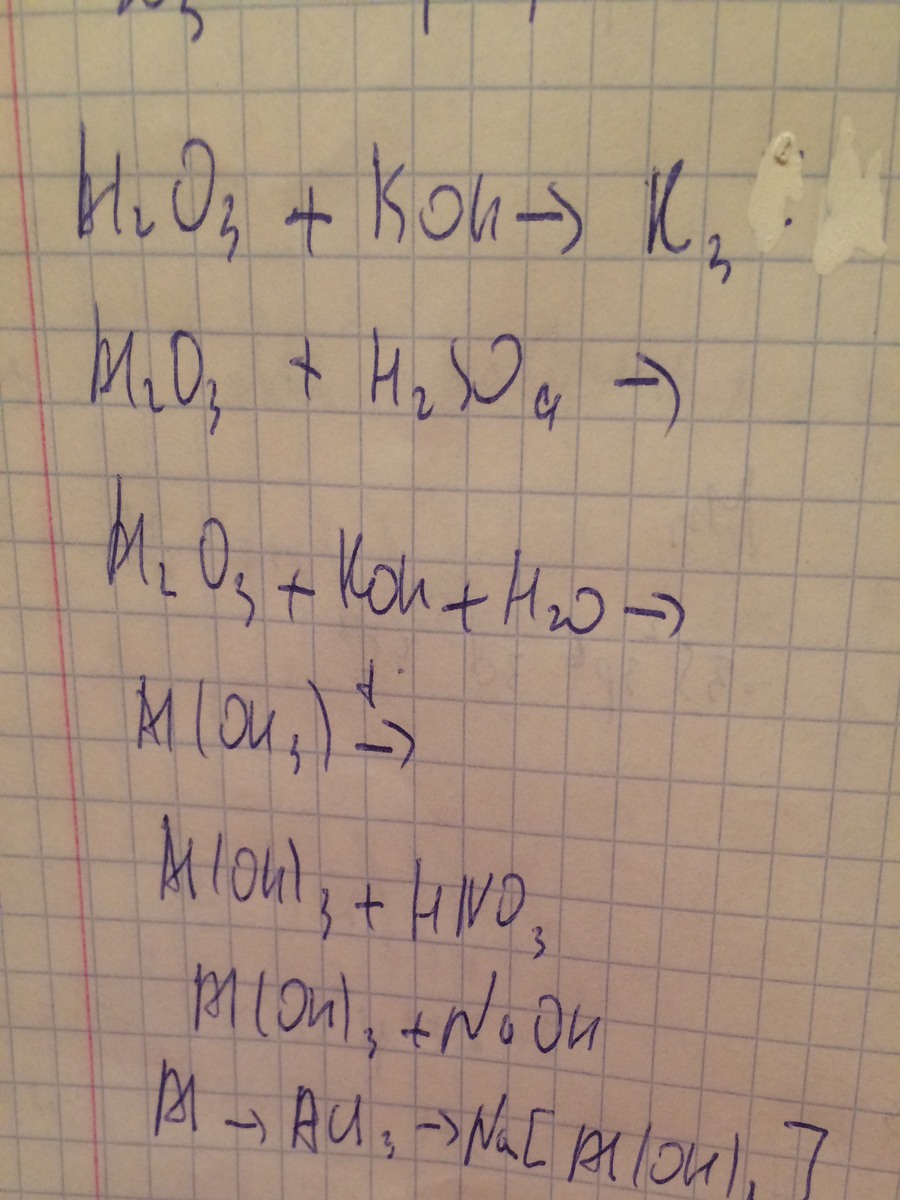 Al₂O₃ + KOH → K₃
Al₂O₃ + H₂SO₄ →
Al₂O₃ + KOH + H₂O →
Al(OH₃) t→
Al(OH)₃ + HNO₃
Al(OH)₃ + NaOH
Al → AlCl₃ → Na[Al(OH)₄]